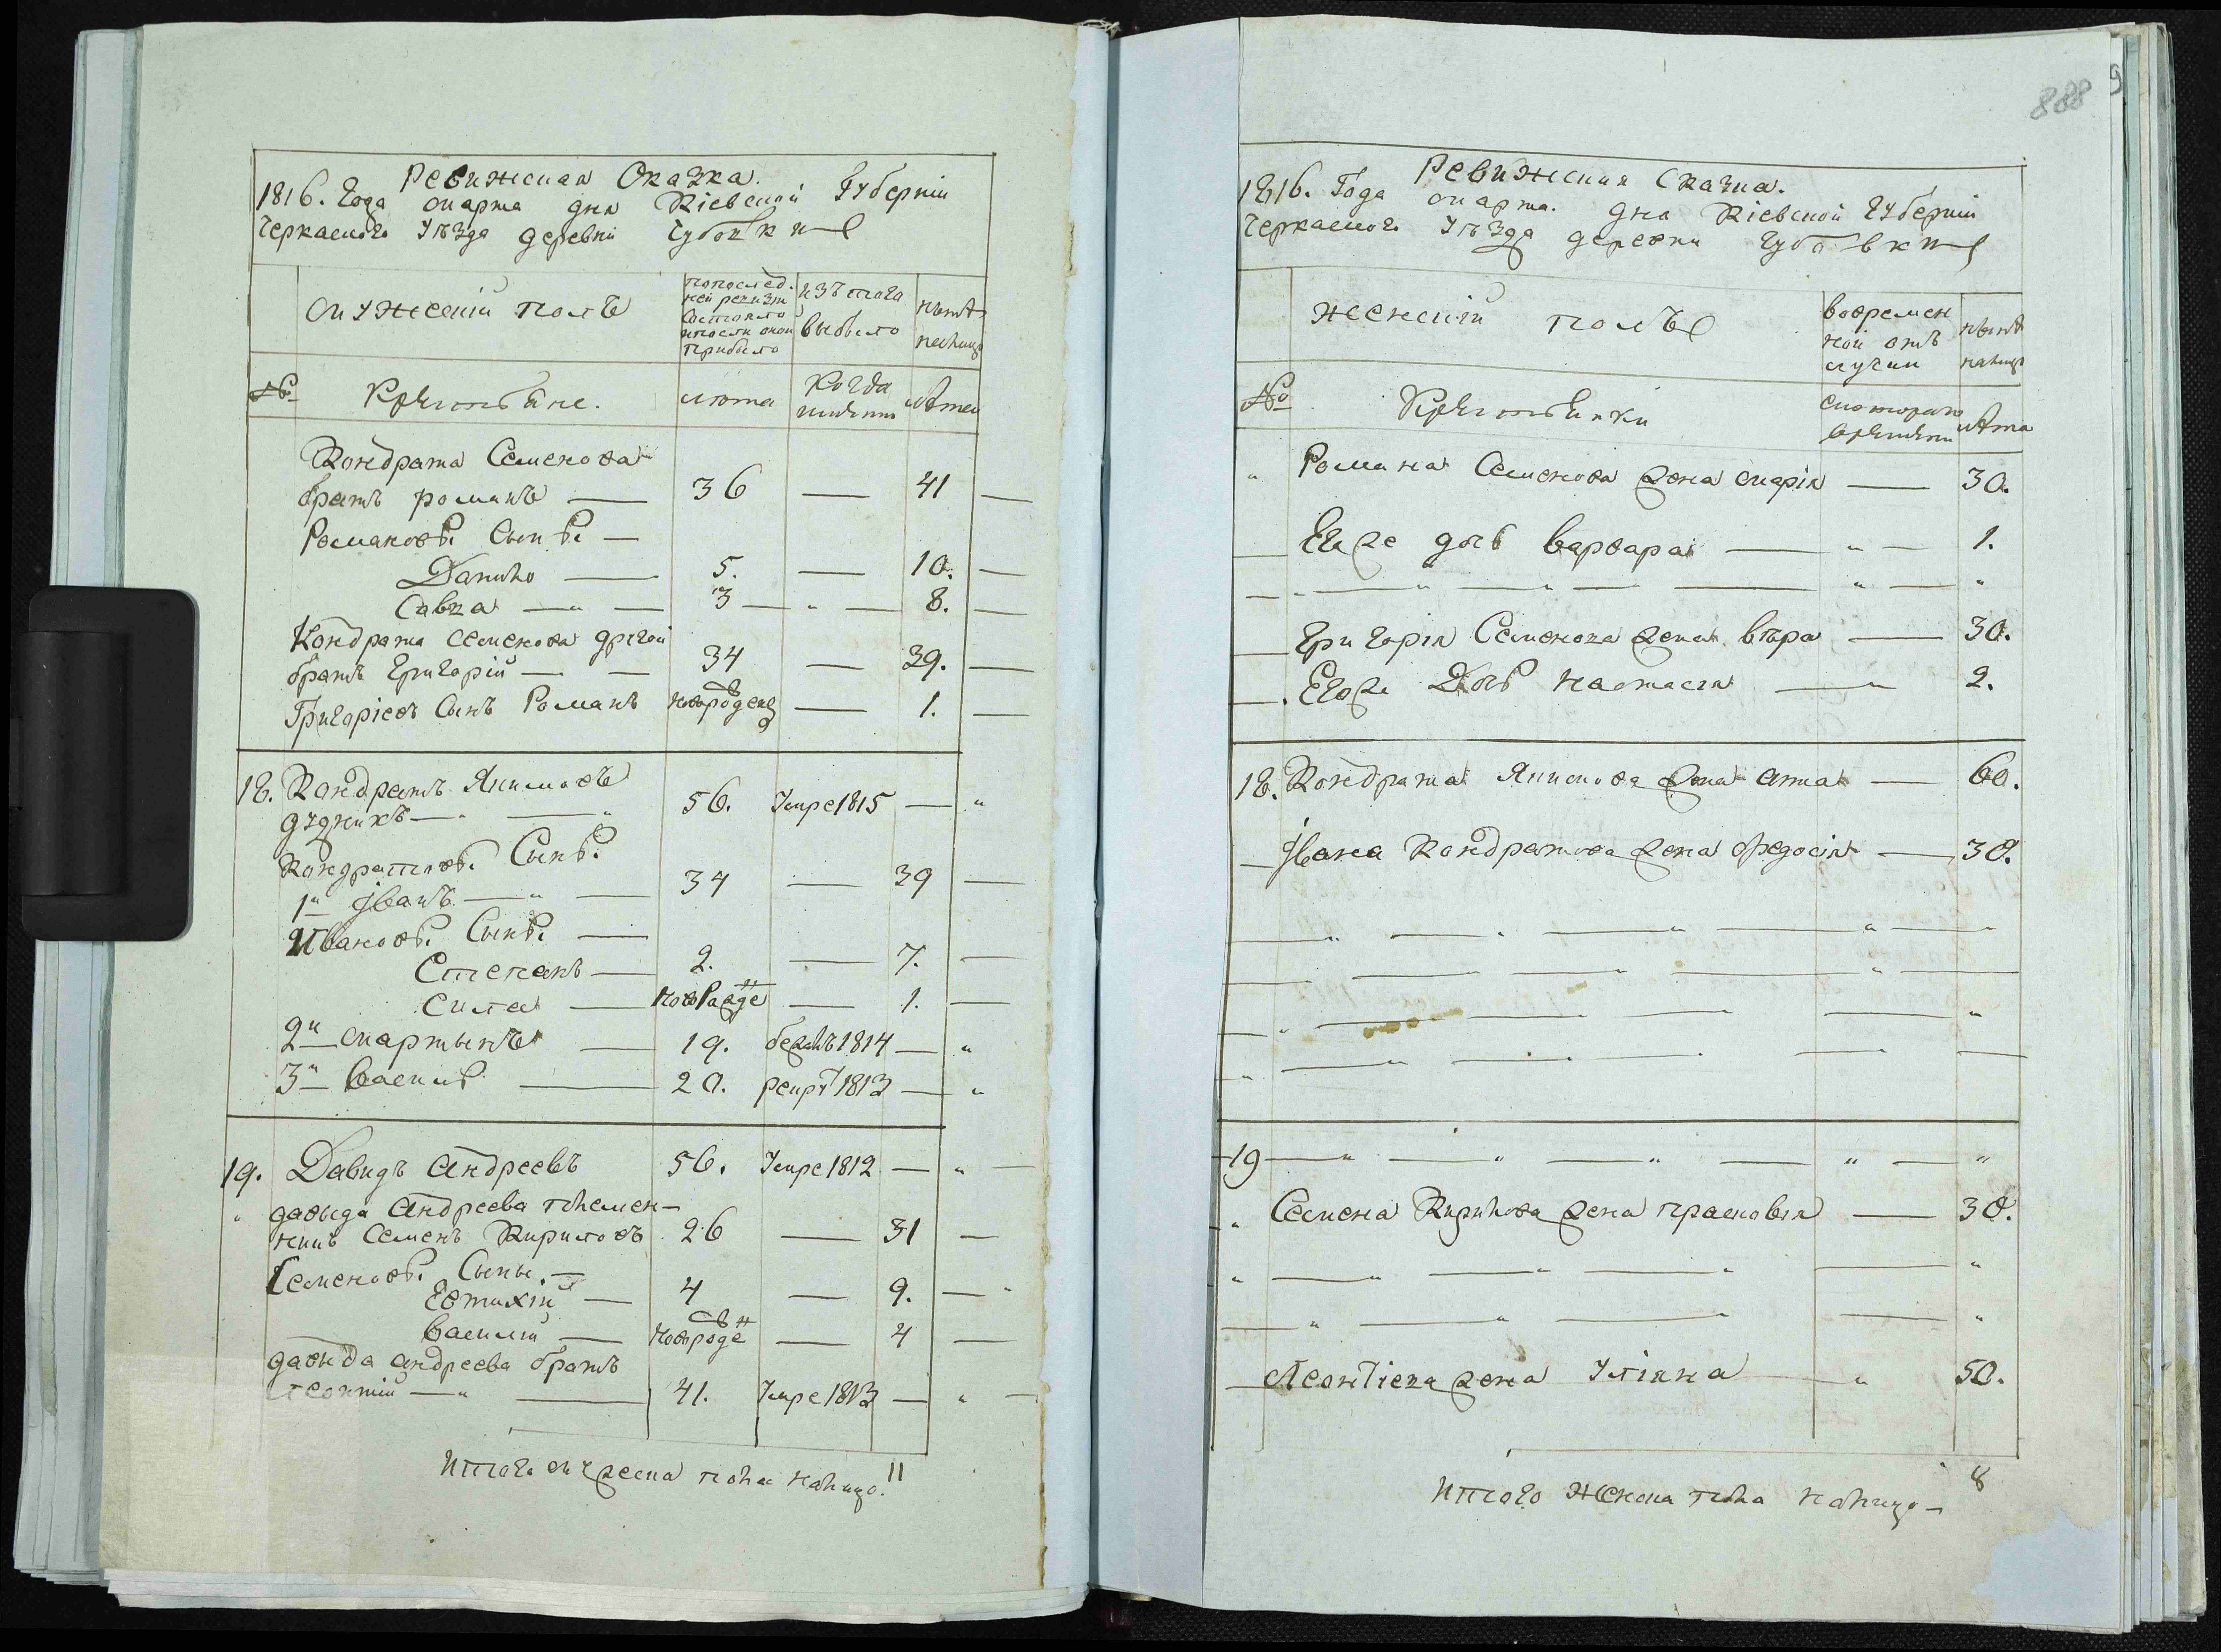 Ревижская Сказка.
1816. Года марта дня Кіевской Губерніи
Черкаского Уѣзда деревни Чубовки
мужескій полъ
попослед-
ней ревизіи
состояло
ипосли оной
прибыло
изъ того
выбыло
нынѣ
налицо
№
Крестьяне.
лѣта
когда
имянно
лѣта
Кондрата Семенова
братъ романъ — 36 — 41 —
Романовы Сыны —
Данило — 5. — 10. —
Савка — " — 3 — " — 8. —
Кондрата семенова другой
братъ Григорій — — 34 — 39. —
Григоріевъ Сынъ Романъ новорожденъ — 1. —
18. Кондратъ Якимовъ
дудникъ — " — " 56. Умре 1815 — "
Кондратовы Сыны
1й Іванъ — " — 34 — 39 —
Ивановы Сыны —
Степанъ — 2. — 7. —
Сила — новорожде — 1. —
2й мартынъ — 19. бежалъ 1814 — "
3й василь — 20. рекру 1813 — "
19. Давидъ Андреевъ 56. Умре 1812 — " —
" давыда Андреева племен-
никъ Семенъ Кириловъ 26 — 31 —
Семеновы Сыны. —
Евтихій — 4 — 9. — "
василій — новорожде — 4 —
давыда андреева братъ
леонтій — " — 41. Умре 1813 — " —
Итого мужеска пола налицо. 11
888
9
Ревижская Сказка.
1816. Года марта. дня Кіевской Губерніи
Черкаского Уѣзда деревни Чубовки
женскій полъ
вовремен
ной отъ
лучки
нынѣ
налицо
№
Крестьянки
скотораго
времяни
лѣта
" Романа Семенова жена марія — 30.
— Егоже дочь варвара — " — 1.
— " — " — " — " — "
— Григорія Семенова жена вѣра — 30.
— . Егоже Дочь настасія — " 2.
18. Кондрата Якимова жена анна — 60.
— Івана Кондратова жена федосія — 30.
— " — " — " — " — "
— " — " — " — " —
— " — — — — "
" — " — " — " — " —
19 — " — " — " — " — "
" Семена Кирилова жена прасковія — 30.
" — " — " — " — "
— " — " — " — "
— Леонтіева жена Уліяна — " 50.
Итого женска пола налицо — 8